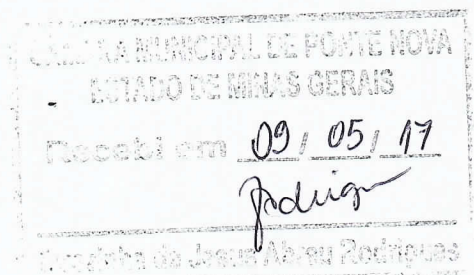 CÂMARA MUNICIPAL DE PONTE NOVA
ESTADO DE MINAS GERAIS
Recebi em 09 / 05 / 17
de Jesus Abreu Rodrigues